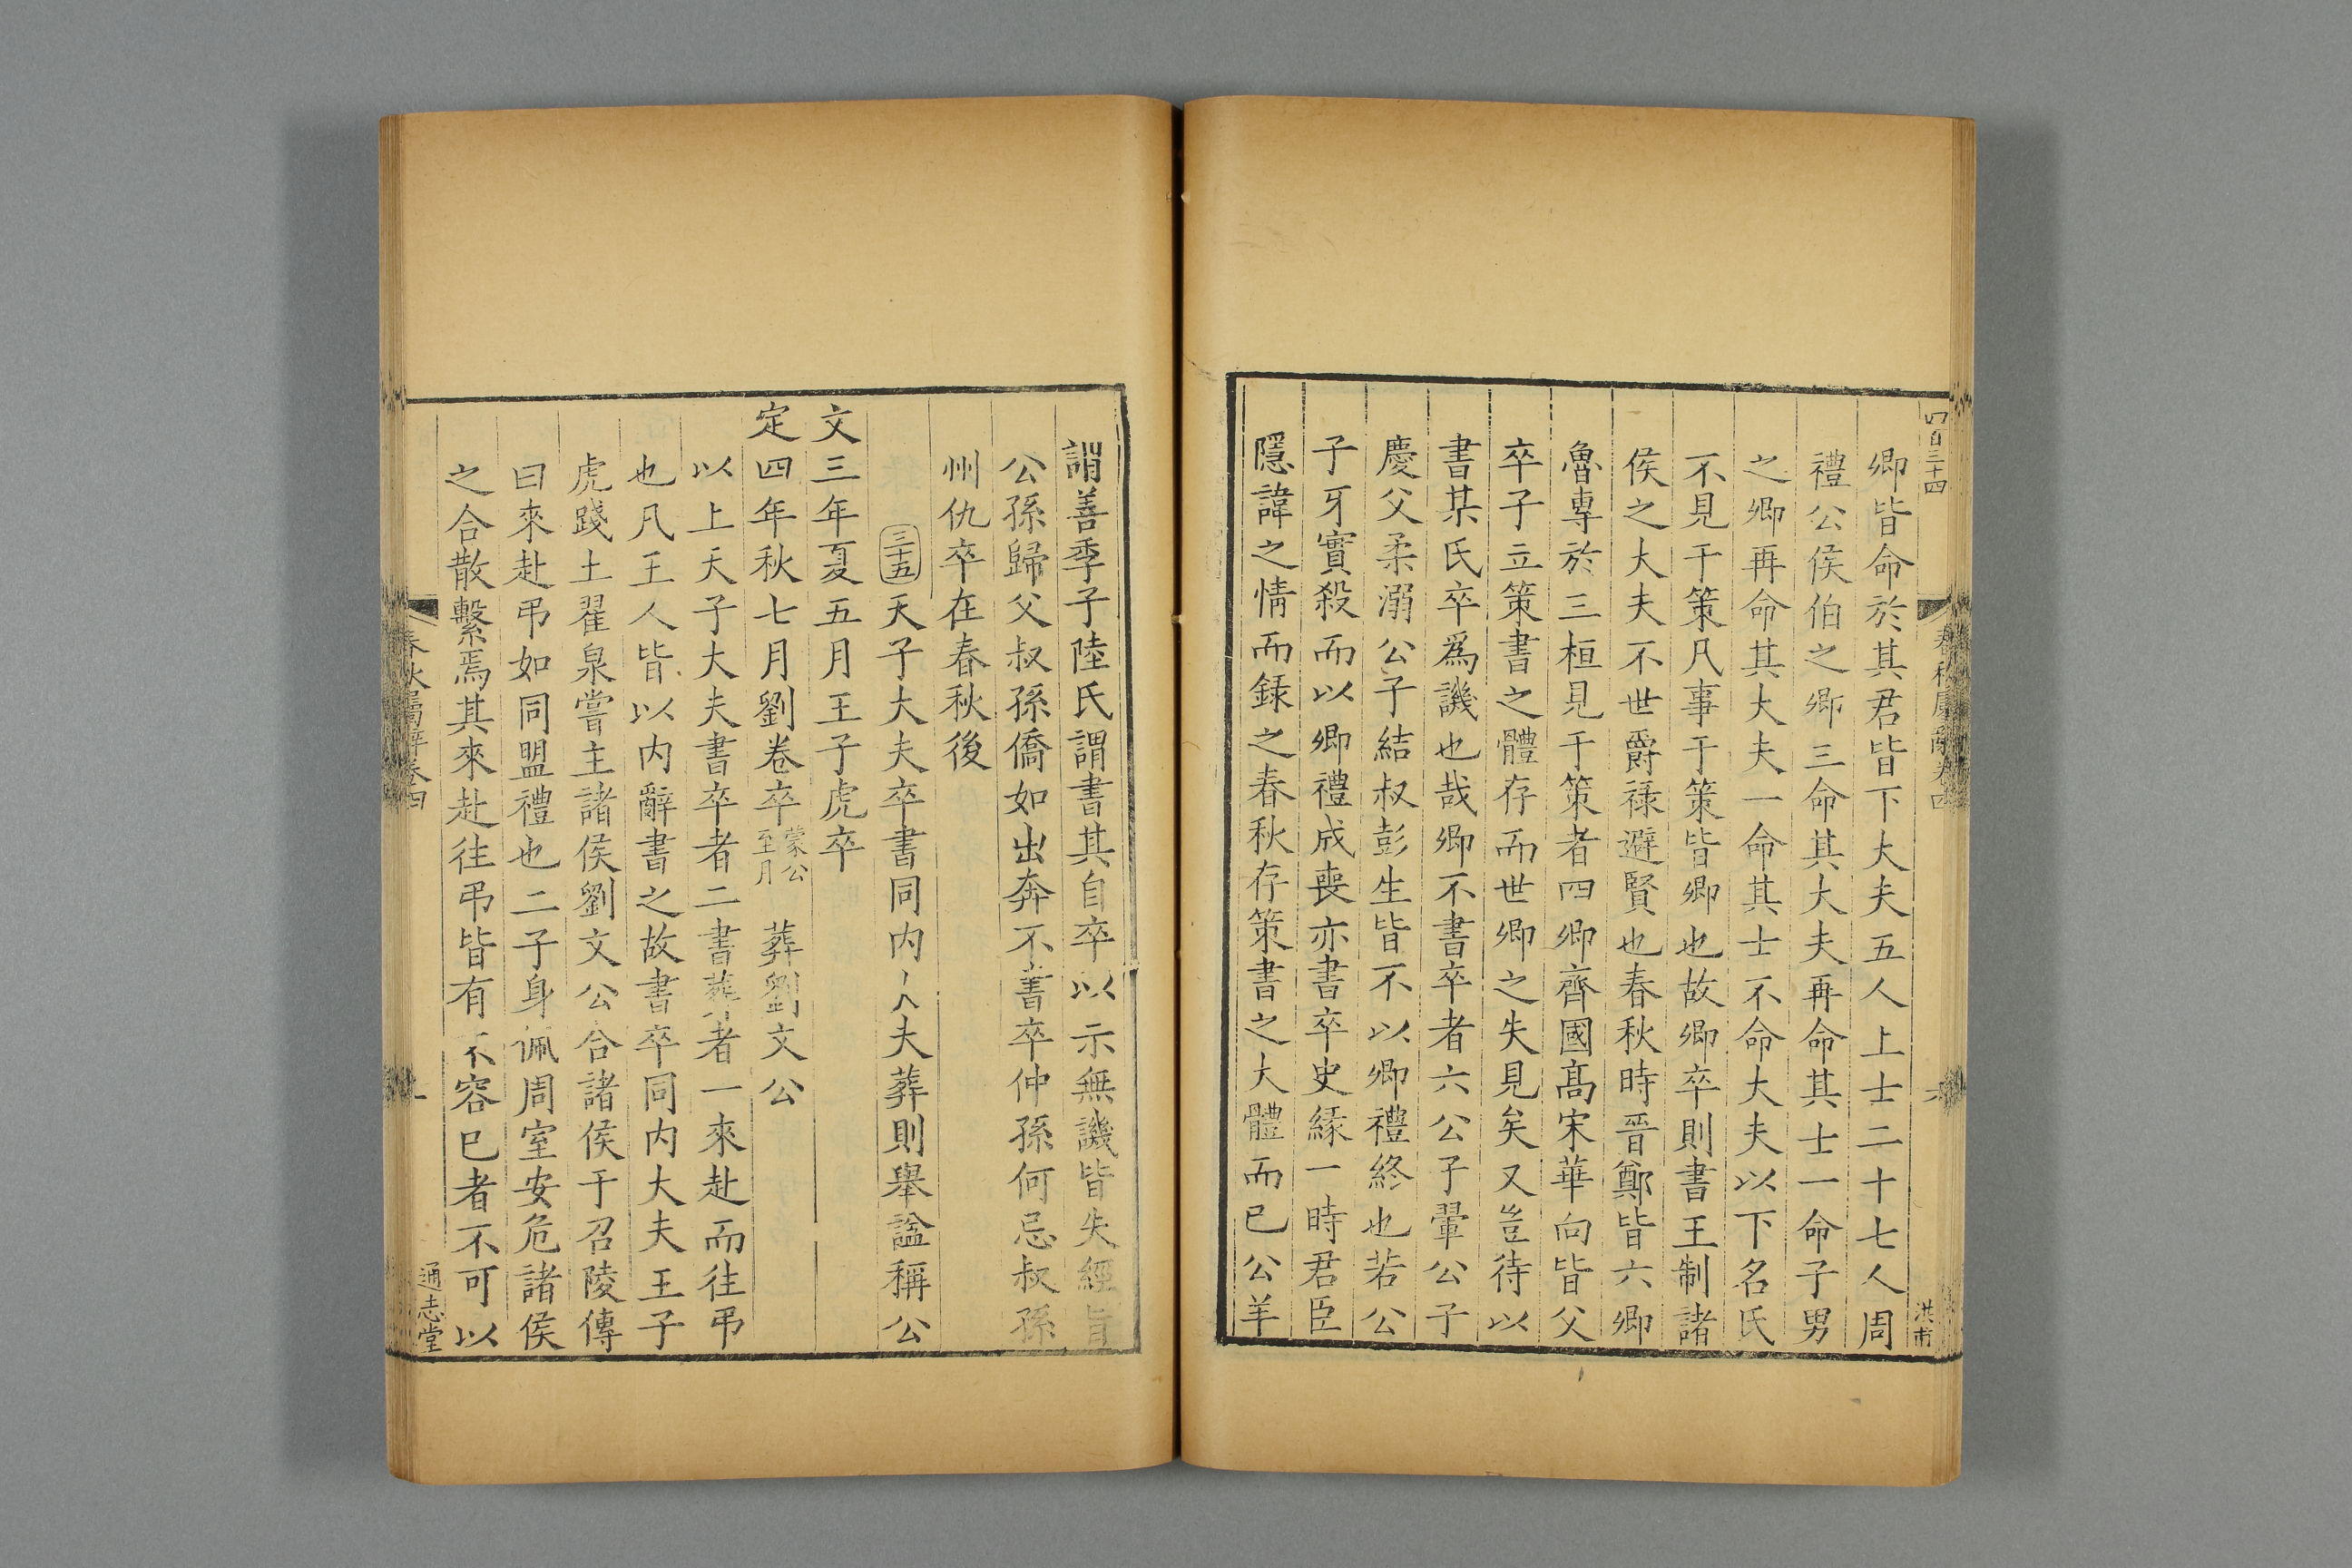 四百三十四
春秋屬辭卷四
洪甫
卿皆命於其君皆下大夫五人上士二十七人周
禮公侯伯之卿三命其大夫再命其士一命子男
之卿再命其大夫一命其士不命大夫以下名氏
不見于策凡事于策皆卿也故卿卒則書王制諸
侯之大夫不世爵祿避賢也春秋時晉鄭皆六卿
魯專於三桓見于策者四卿齊國高宋華向皆父
卒子立策書之體存而世卿之失見矣又豈待以
書某氏卒爲譏也哉卿不書卒者六公子翬公子
慶父柔溺公子結叔彭生皆不以卿禮終也若公
子牙實殺而以卿禮成喪亦書卒史緣一時君臣
隱諱之情而録之春秋存策書之大體而已公羊
謂善季子陸氏謂書其自卒以示無譏皆失經旨
公孫歸父叔孫僑如出奔不書卒仲孫何忌叔孫
州仇卒在春秋後
三十五天子大夫卒書同内大夫葬則舉諡稱公
文三年夏五月王子虎卒
定四年秋七月劉卷卒蒙公至月 葬劉文公
以上天子大夫書卒者二書葬者一來赴而往弔
也凡王人皆以内辭書之故書卒同内大夫王子
虎踐土翟泉嘗主諸侯劉文公合諸侯于召陵傳
曰來赴弔如同盟禮也二子身佩周室安危諸侯
之合散繫焉其來赴往弔皆有不容已者不可以
春秋屬辭卷四
通志堂